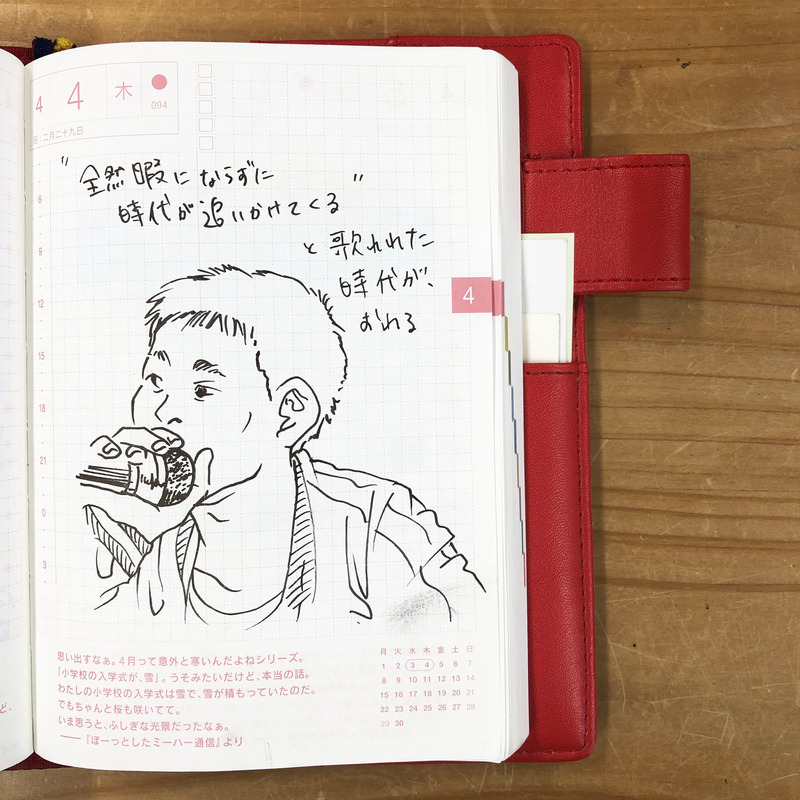 4 4 木
094
二月二十九日
"全然暇にならずに
時代が追いかけてくる"
と歌われた
時代が、
おわる
4
6
9
12
15
18
21
0
3
思い出すなぁ。4月って意外と寒いんだよねシリーズ。
「小学校の入学式が、雪」。うそみたいだけど、本当の話。
わたしの小学校の入学式は雪で、雪が積もっていたのだ。
でもちゃんと桜も咲いてて。
いま思うと、ふしぎな光景だったなぁ。
──『ぼーっとしたミーハー通信』より
月 火 水 木 金 土 日
1 2 3 4 5 6 7
8 9 10 11 12 13 14
15 16 17 18 19 20 21
22 23 24 25 26 27 28
29 30
ど、